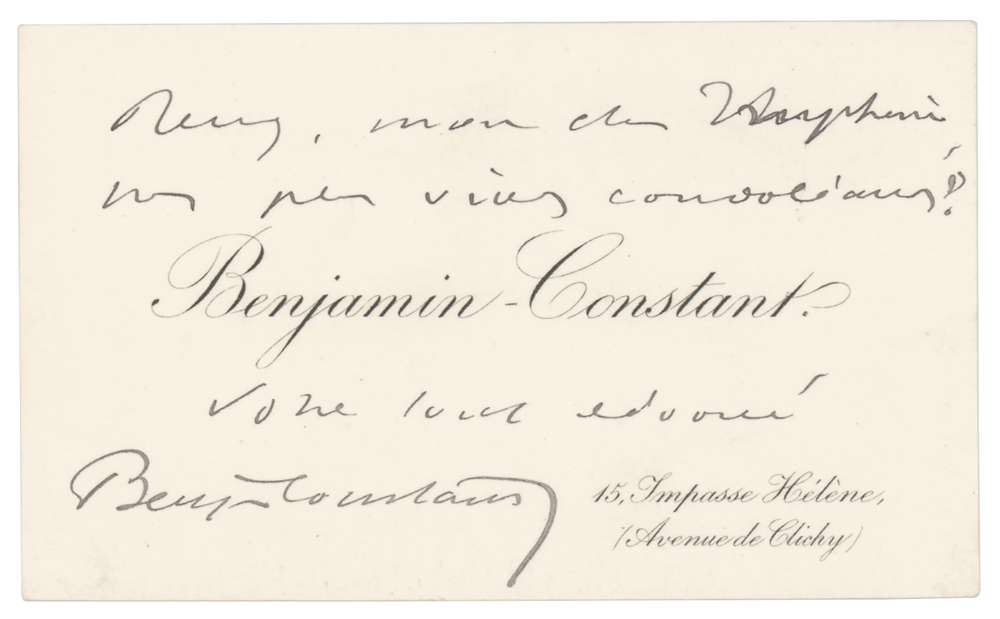 mon cher
nos plus vives condoléances!
Benjamin-Constant.
Votre tout dévoué
Benj-Constant
15, Impasse Hélène,
(Avenue de Clichy)